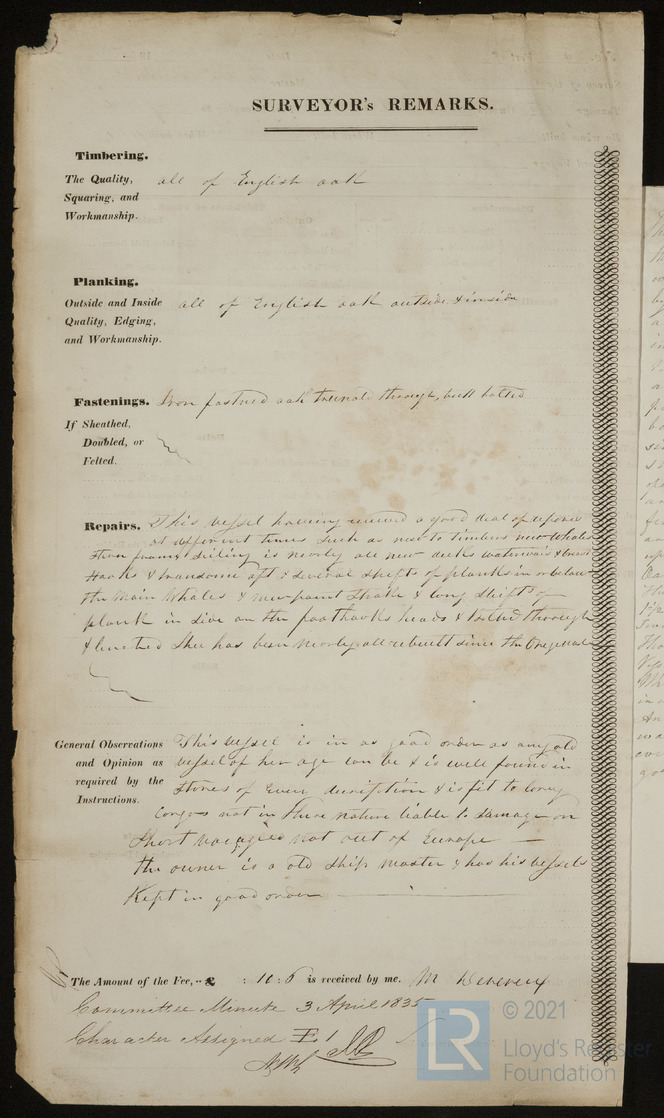 SURVEYOR's REMARKS.
Timbering.
The Quality, all of English oak
Squaring, and
Workmanship.
Planking.
Outside and Inside all of English oak outside & inside
Quality, Edging,
and Workmanship.
Fastenings. Iron fastned oak trunals through, butt bolted
If Sheathed,
Doubled, or
Felted.
Repairs. This vessel having received a good deal of repairs
at different times such as new to timbers new whales
Stern frame Sieling is nearly all new decks waterways & breast
Hooks & transoms aft & several shifts of planks in or below
the Main Whales & new paint Strake & long Shifts of
plank in side on the foothooks heads & bolted through
& clinched Shee has been nearly all rebuilt since the
General Observations This vessel is in as good order as any old
and Opinion as vessel of her age can be & is well found in
required by the Stores of Every description & is fit to Carry
Instructions. Cargos not in there nature liable to damage on
Short voyages not out of Europe —
the owner is a old Ship master & has his vessels
Kept in good order
The Amount of the Fee, .. £ : 10 : 6 is received by me. M
Committee Minute 3 April 1835
Character Assigned E 1
LR
© 2021
Lloyd's Register
Foundation